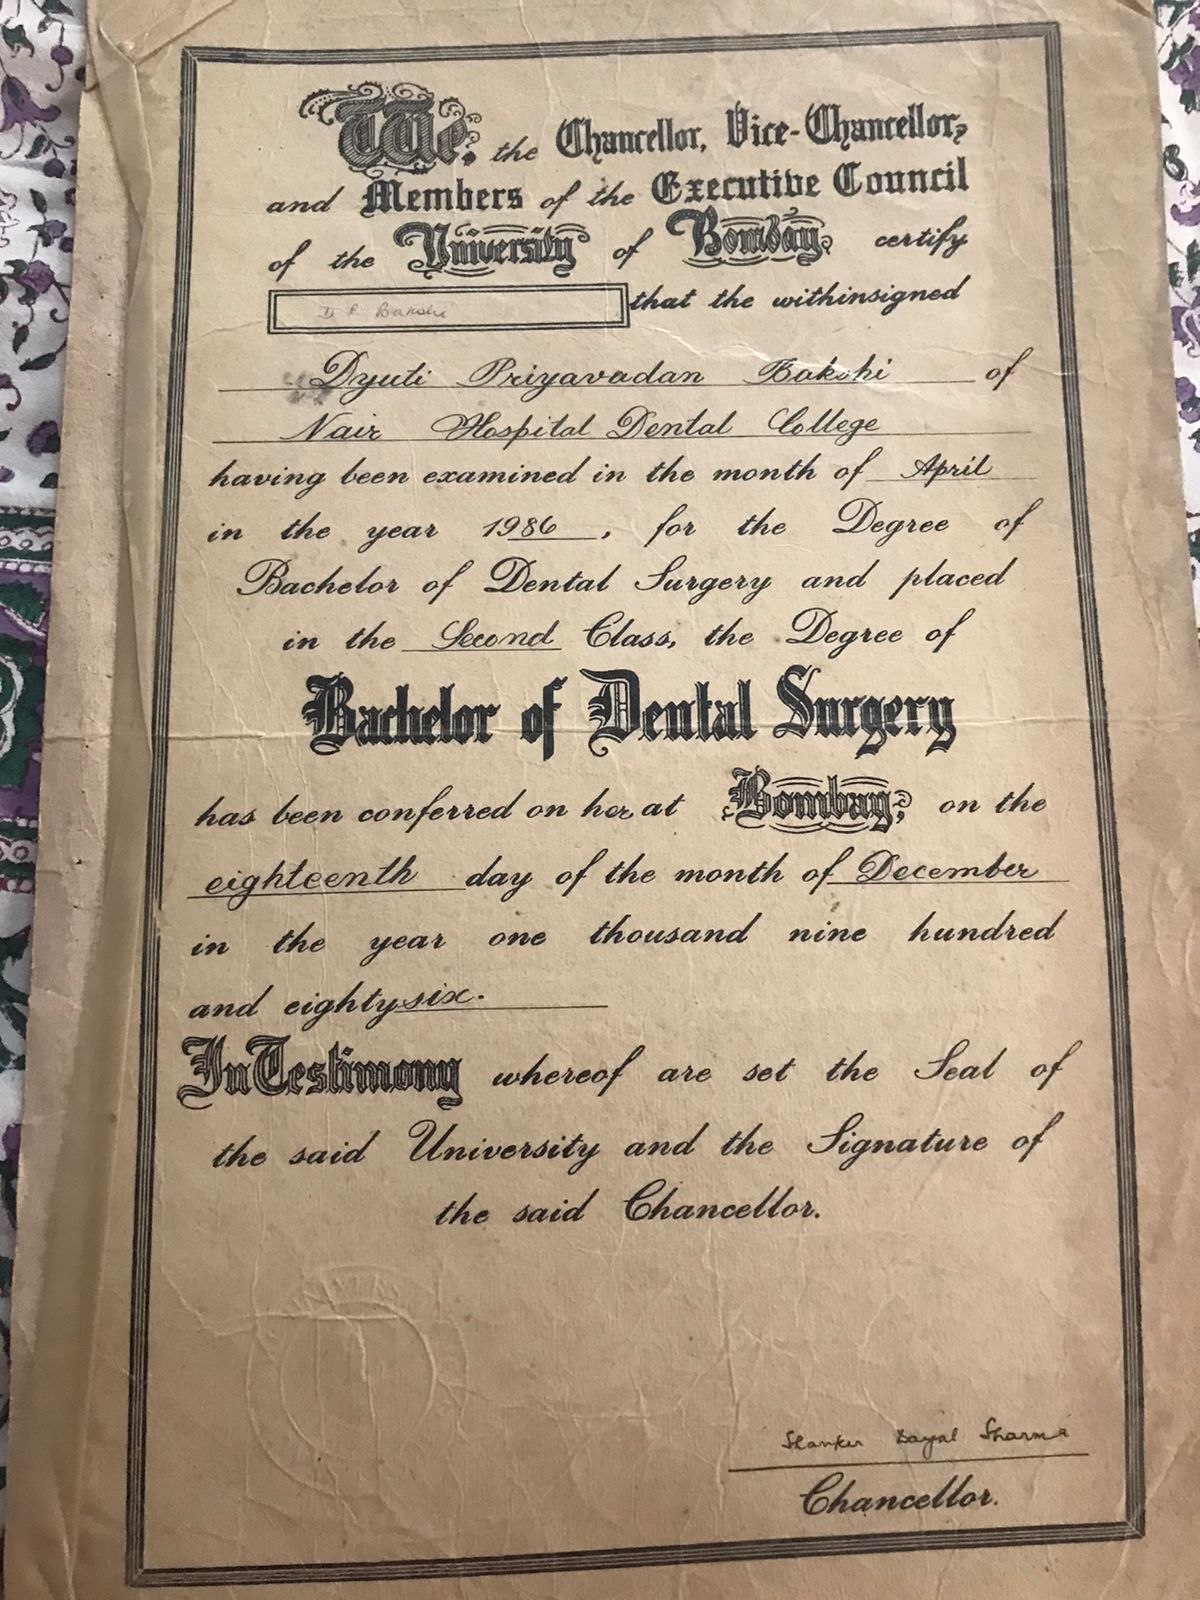 We, the Chancellor, Vice-Chancellor,
and Members of the Executive Council
of the University of Bombay, certify
D P Bakshi that the withinsigned
Dyuti Priyavadan Bakshi of
Nair Hospital Dental College
having been examined in the month of April
in the year 1986, for the Degree of
Bachelor of Dental Surgery and placed
in the Second Class, the Degree of
Bachelor of Dental Surgery
has been conferred on her at Bombay, on the
eighteenth day of the month of December
in the year one thousand nine hundred
and eighty six.
In Testimony whereof are set the Seal of
the said University and the Signature of
the said Chancellor.
Shanker Dayal Sharma
Chancellor.